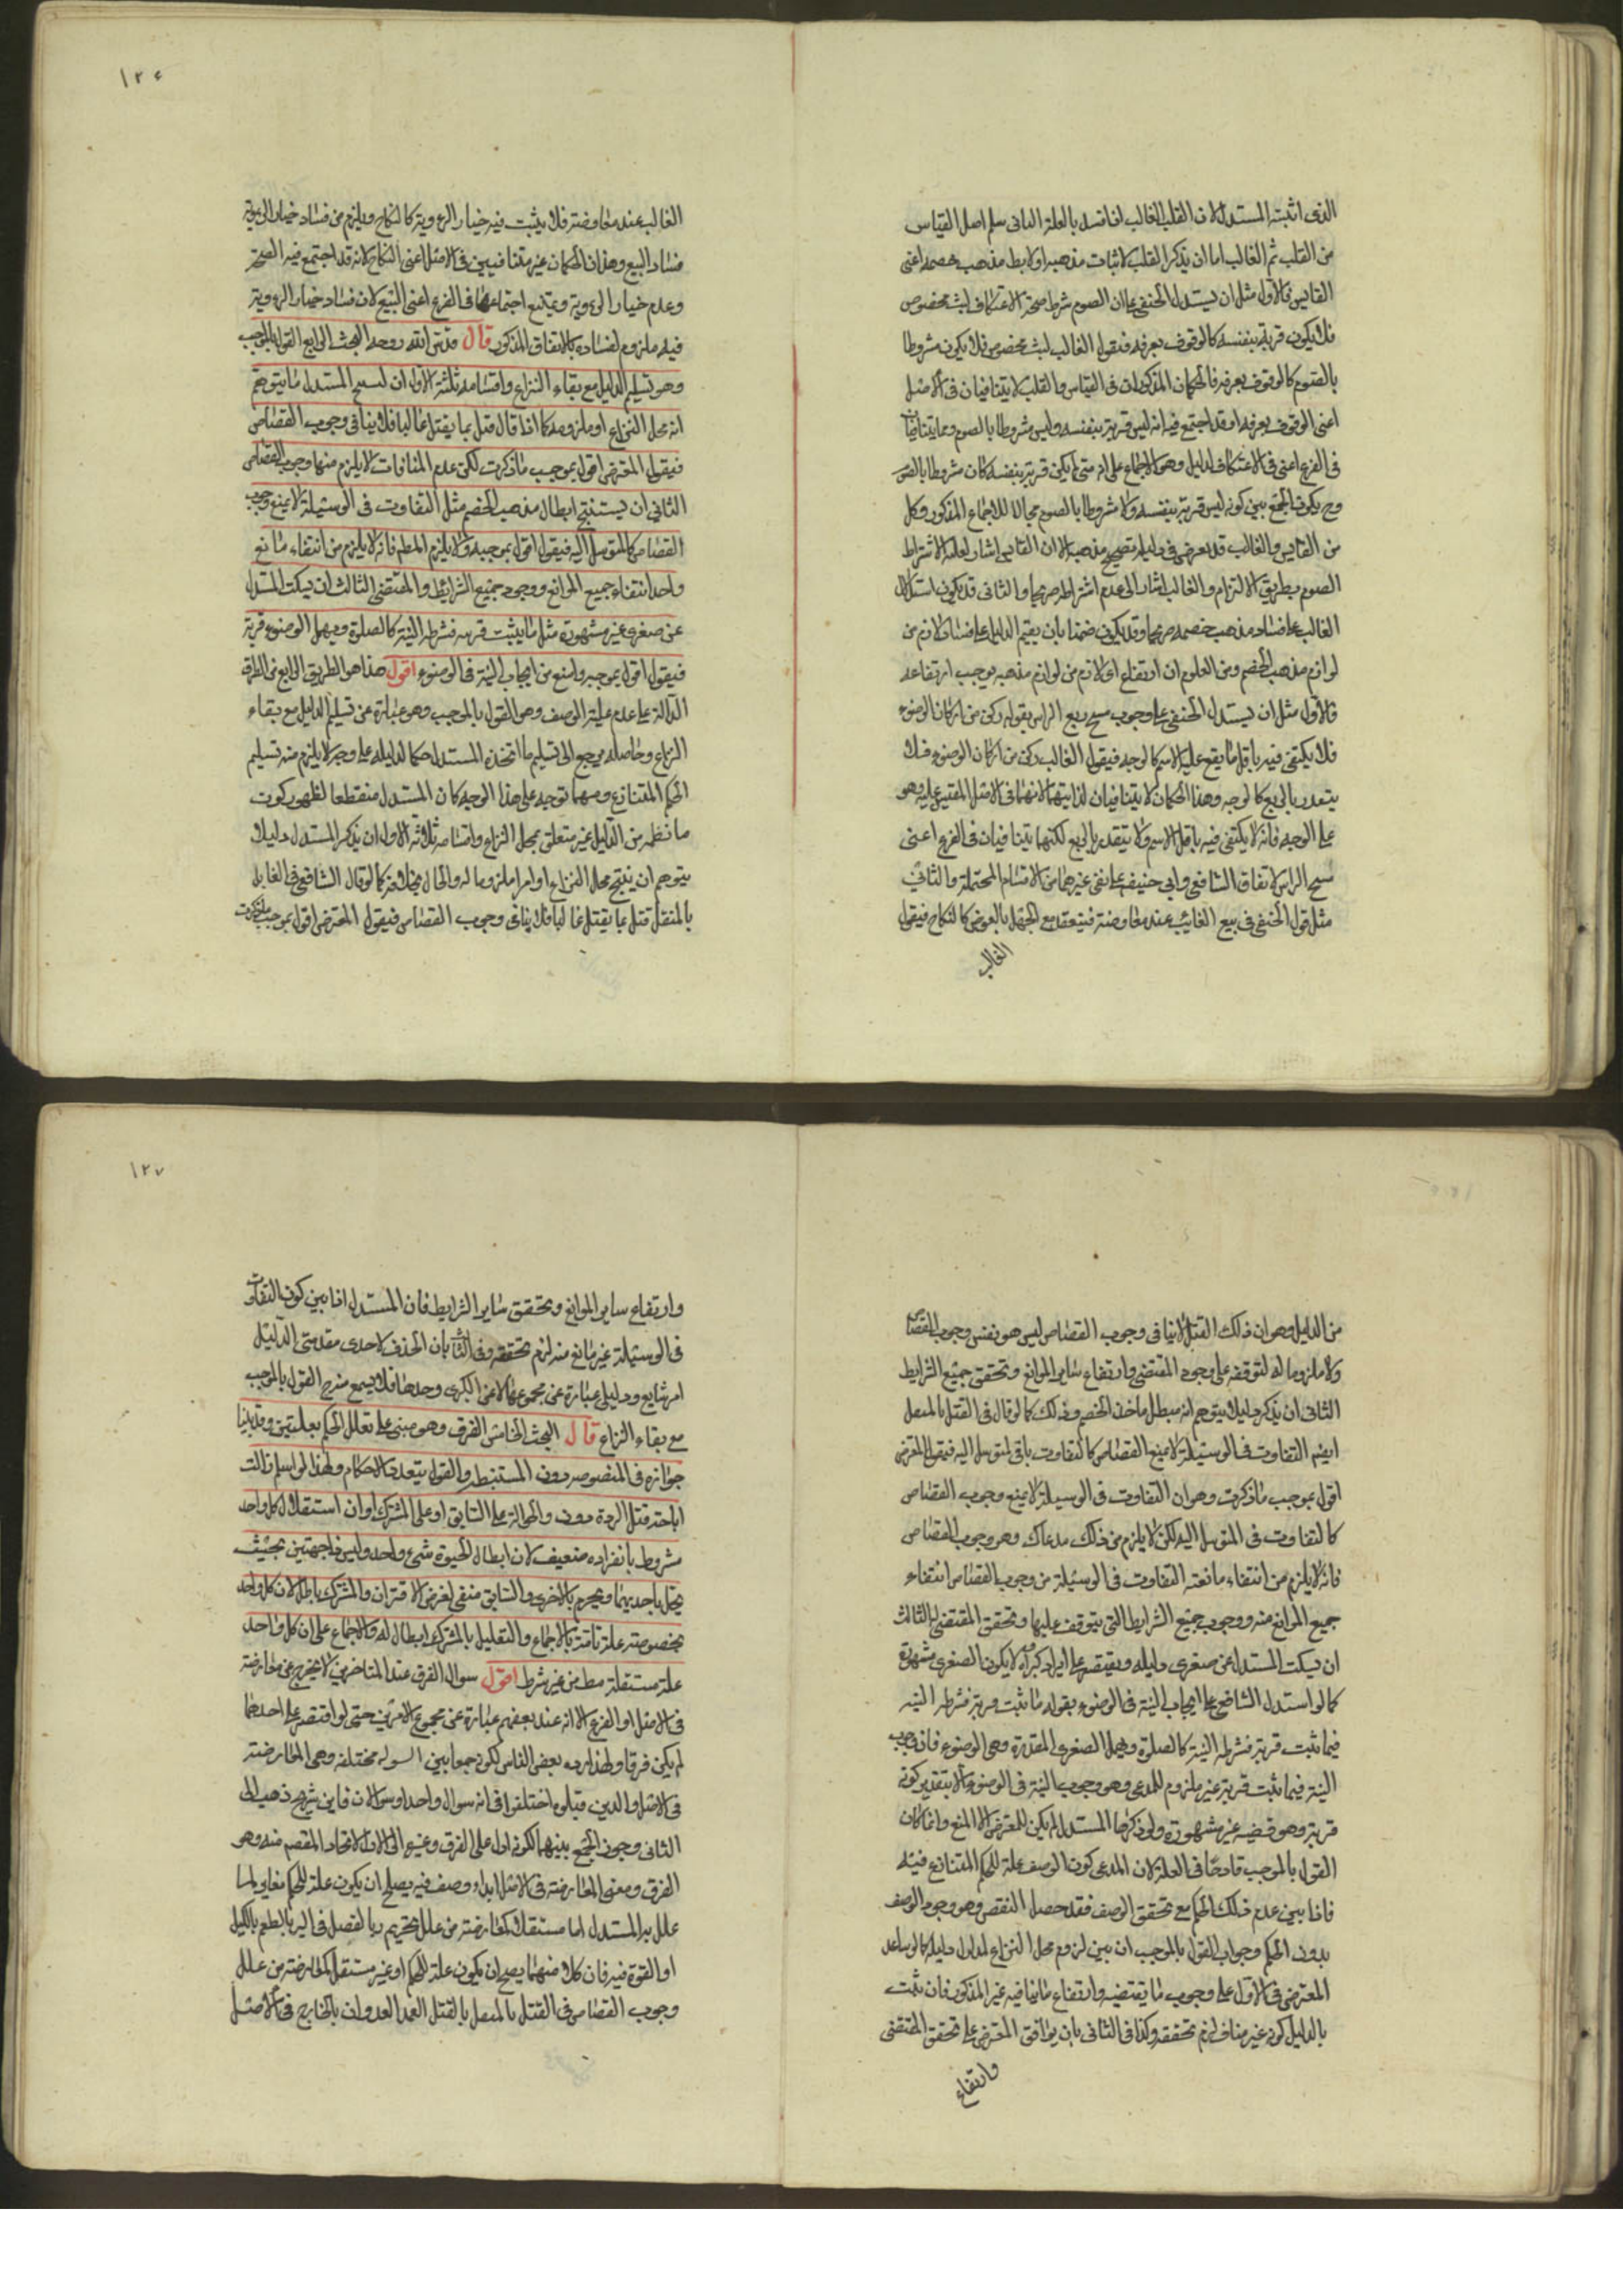 ١٢٦
الذى اثبته المستدل لان القلب الغالب اذا فسد بالعلة الثانى سلم اصل القياس
من القلب ثم الغالب اما ان يذكر القلب لاثبات مذهبه او لابطا مذهب خصمه اعنى
القايس فالاول مثل ان يستدل الحنفى على ان الصوم شرط صحة الاعتكاف لبث مخصوص
فلا يكون قربة بنفسه كالوقوف بعرفه فيقول الغالب لبث مخصوص فلا يكون مشروطا
بالصوم كالوقوف بعرفه فالحكمان المذكوران فى القياس والقلب لا يتنافيان فى الاصل
اعنى الوقوف بعرفه اذ قد اجتمع فيه انه ليس قربة بنفسه وليس مشروطا بالصوم وهما يتنافيان
فى الفرع اعنى فى الاعتكاف لدليل وهو الاجماع على انه متى لم يكن قربة بنفسه كان مشروطا بالصوم
وح يكون الجمع بين كونه ليس قربة بنفسه ولا مشروطا بالصوم محالا للاجماع المذكور وكل
من القايس والغالب قد تعرض فى دليله تصحيح مذهبه الا ان القايس اشار لعلة الاشتراط
الصوم بطريق الالتزام والغالب اشار الى عدم اشتراطه صريحا والثانى قد يكون استدلال
الغالب على فساد مذهب خصمه صريحا وقد يكون ضمنا بان يقيم الدليل على فساد لازم من
لوازم مذهب الخصم ومن المعلوم ان ارتفاع اى لازم من لوازم مذهبه يوجب ارتفاعه
فالاول مثل ان يستدل الحنفى على وجوب مسح ربع الراس بقوله ركن من اركان الوضوء
فلا يكتفى فيه باقل ما يقع عليه الاسم كالوجه فيقول الغالب ركن من اركان الوضوء فلا
يتقدر بالربع كالوجه وهذان الحكمان لا يتنافيان لذاتيهما لانهما فى الاصل المقيس عليه وهو
على الوجه فانه لا يكتفى فيه باقل الاسم ولا يتقدر بالربع لكنهما يتنافيان فى الفرع اعنى
مسح الراس لاتفاق الشافعى وابى حنيفه على نفى غيرهما من الاقسام المحتملة والثانى
مثل قول الحنفى فى بيع الغائب عقد معاوضة فينعقد مع الجهل بالعوض كالنكاح فيقول
الغالب
الغالب عقد معاوضة فلا يثبت فيه خيار الروية كالنكاح ويلزم من فساد خيار الروية
فساد البيع وهذان الحكمان غير متنافيين فى الاصل اعنى النكاح لانه قد اجتمع فيه الصحة
وعدم خيار الروية ويمتنع اجتماعهما فى الفرع اعنى البيع لان فساد خيار الروية
فيه ملزوم لفساده بالاتفاق المذكور قال قدس الله روحه البحث الرابع القول بالموجب
وهو تسليم الدليل مع بقاء النزاع واقسامه ثلثة الاول ان ينسج المستدل ما يتوهم
انه محل النزاع او ملزومه كما اذا قال قتل بما يقتل غالبا فلا ينافى وجوب القصاص
فيقول المعترض اقول بموجب ما ذكرت لكن عدم المنافات لا يلزم منها وجوب القصاص
الثانى ان يستنتج ابطال مذهب الخصم مثل التفاوت فى الوسيلة لا يمنع وجوب
القصاص كالمتوسل اليه فيقول اقول بموجبه ولا يلزم المطم فانه لا يلزم من انتفاء مانع
واحد انتفاء جميع الموانع ووجود جميع الشرائط والمقتضى الثالث ان يسكت المستدل
عن صغرى غير مشهورة مثل ما يثبت قربه فشرطه النية كالصلوة ويهمل الوضوء قربة
فيقول اقول بموجبه وامنع من ايجاب النية فى الوضوء اقول هذا هو الطريق الرابع من الطرق
الدالة على عدم علية الوصف وهو القول بالموجب وهو عبارة عن تسليم الدليل مع بقاء
النزاع وحاصله يرجع الى تسليم ما اتخذه المستدل حكما لدليله على وجه لا يلزم منه تسليم
الحكم المتنازع ومهما توجه على هذا الوجه كان المستدل منقطعا لظهور كون
ما نظمه من الدليل غير متعلق بمحل النزاع واقسامه ثلاثة الاول ان يذكر المستدل دليلا
يتوهم ان ينتج محل النزاع او امرا ملزوما له والحال بخلافه كما لو قال الشافعى فى القاتل
بالمثقل قتل بما يقتل غالبا فلا ينافى وجوب القصاص فيقول المعترض اقول بموجب ما ذكرت
١٢٧
من الدليل وهو ان ذلك القتل لا ينافى وجوب القصاص ليس هو نفس وجوب القصاص
ولا ملزوما له لتوقفه على وجود المقتضى وارتفاع ساير الموانع وتحقق جميع الشرايط
الثانى ان يذكر دليلا يتوهم انه مبطل ماخذ الخصم وذلك كما لو قال فى القتل بالمثقل
ايضم التفاوت فى الوسيلة لا يمنع القصاص كالتفاوت باقى المتوسل اليه فيقول المعترض
اقول بموجب ما ذكرت وهو ان التفاوت فى الوسيلة لا يمنع وجوب القصاص
كالتفاوت فى المتوسل اليه لكن لا يلزم من ذلك مدعاك وهو وجوب القصاص
فانه لا يلزم من انتفاء مانعية التفاوت فى الوسيلة من وجوب القصاص انتفاء
جميع الموانع منه ووجوب جميع الشرايط التى يتوقف عليها وتحقق المقتضى له الثالث
ان يسكت المستدل عن صغرى دليله ويقتصر على ايراد كبراه ولا يكون الصغرى مشهورة
كما لو استدل الشافعى على ايجاب النية فى الوضوء بقوله ما ثبت قربة فشرطه النيه
فيما ثبت قربة فشرطه النية كالصلوة ويهمل الصغرى المقدرة وهى الوضوء فان وجوب
النية فيما ثبت قربة غير ملزوم للمدعى وهو وجوب النية فى الوضوء الا بتقدير كونه
قربة وهو قضيه غير مشهورة ولو ذكرها المستدل لم يكن للمعترض الا المنع وانما كان
القول بالموجب قادحا فى العلة لان المدعى كون الوصف علة للحكم المتنازع فيه
فاذا بين عدم ذلك الحكم مع تحقق الوصف فقد حصل النقض وهو وجود الوصف
بدون الحكم وجواب القول بالموجب ان يبين لزوم محل النزاع لمدلول دليله كما لو ساعد
المعترض فى الاول على وجوب ما يقتضيه وارتفاع ما ينافيه غير المذكور فان ثبت
بالدليل كونه غير مناف لزم تحققه وكذا فى الثانى بان يوافق المعترض على تحقق المقتضى
وارتفاع
وارتفاع ساير الموانع وتحقق ساير الشرايط فان المستدل اذا بين كون التفاوت
فى الوسيلة غير مانع منه لزم تحققه وفى الثالث بان الحذف لاحدى مقدمتى الدليل
امر شايع ودليلى عبارة عن مجموعهما لا عن الكبرى وحدها فلا يسمع منح القول بالموجب
مع بقاء النزاع قال البحث الخامس الفرق وهو مبنى على تعلل الحكم بعلتين وقد بينا
جوازه فى المنصوصه دون المستنبطه والقول بتعدد الاحكام ولهذا لو اسلم زالت
اباحة قتل الردة دون والحوالة على السابق او على المشترك او ان استقلال كل واحد
مشروط بانفراده ضعيف لان ابطال الحيوة شئ واحد وليس ذا جهتين بحيث
يحل باحديهما ويحرم بالاخرى والسابق منفى لفرض الاقتران والمشترك باطل لان كل واحد
بخصوصه علة تامة بالاجماع والتعليل بالمشترك ابطال له والاجماع على ان كل واحد
علة مستقلة مط من غير شرط اقول سوال الفرق عند المتاخرين لا يخرج عن معارضة
فى الاصل او الفرع الا انه عند بعضهم عبارة عن مجموع الامرين حتى لو اقتصر على احدهما
لم يكن فرقا ولهذا رده بعض الناس لكونه جمعا بين اسوله مختلفه وهى المعارضة
فى الاصل والذين قبلوه اختلفوا فى انه سوال واحد او سوالان فابن شريح ذهب الى
الثانى وجوز الجمع بينهما لكونه ادل على الفرق وغيره الى الاول لاتحاد المقصم منه وهو
الفرق ومعنى المعارضة فى الاصل ابداء وصف فيه يصلح ان يكون علة للحكم مغاير لما
علل به المستدل اما مستقلة كمعارضة من علل تحريم ربا الفضل فى البر بالطعم بالكيل
او القوة فيه فان كلا منهما يصح ان يكون علة للحكم او غير مستقل كمعارضة من علل
وجوب القصاص فى القتل بالمثقل بالقتل العمد العدوان بالخارج فى الاصل